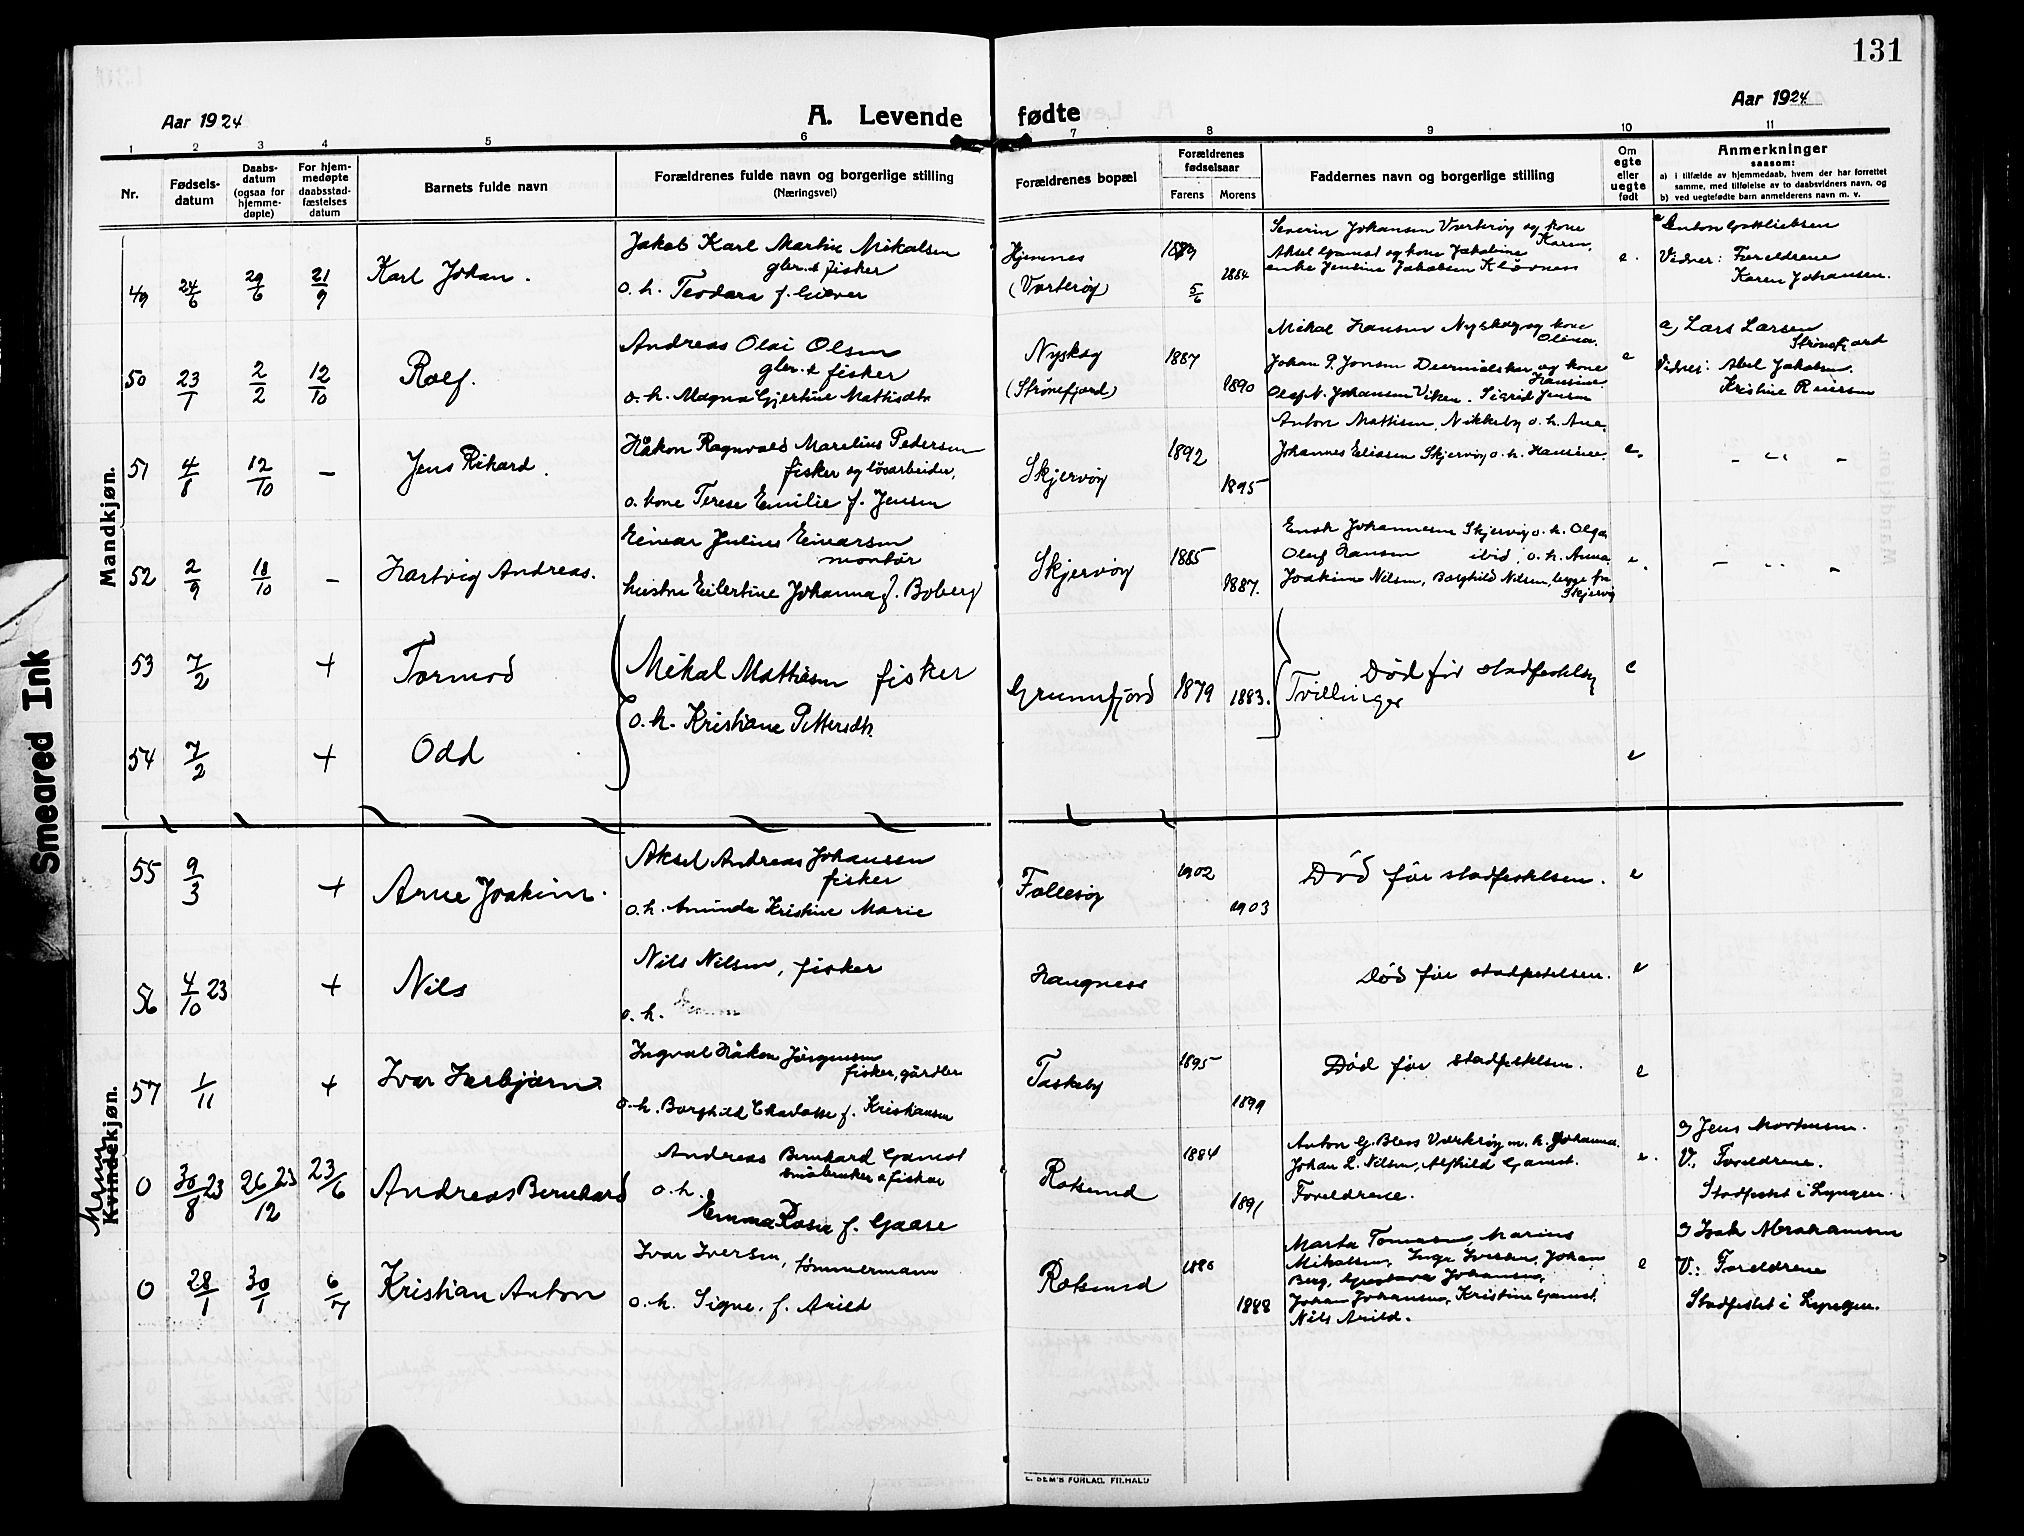 131
Aar 1924
A. Levende fødte
Aar 1924
1 2 3 4 5 6 7 8 9 10 11
Nr.
Fødsels-
datum
Daabs-
datum
(ogsaa for
hjemme-
døpte)
For hjem-
medøpte
daabsstad-
fæstelses
datum
Barnets fulde navn
Forældrenes fulde navn og borgerlige stilling
(Næringsvei)
Forældrenes bopæl
Forældrenes
fødselsaar
Farens Morens
Faddernes navn og borgerlige stilling
Om
egte
eller
uegte
født
Anmerkninger
saasom:
a) i tilfælde av hjemmedaab, hvem der har forrettet
samme, med tilføielse av to daabsvidners navn, og
b) ved uegtefødte barn anmelderens navn m. v.
Mandkjøn.
49 24/6 29/6 21/9 Karl Johan.
Jakob Karl Martin Mikalsen
gbr. & fisker
o. h. Teodora f. Giæver
Hjemnes
(Vorterøy)
1883 5/6
1884
Severin Johansen Vorterøy og kone
Karen,
Aksel Gamst og kone Jakobine
enke Jentine Jakobsen Kløvnes
e.
a Anton Gottliebsen
Vidner: Foreldrene
Karen Johansen.
50 23/1 2/2 12/10 Rolf.
Andreas Olai Olsen
gbr. & fisker
o. h. Magna Gjertine Mattisdtr
Nyskog
(Strømfjord)
1887
1890
Mikal Hansen Nyskog og kone
Olina.
Johan P. Jensen og kone
Hansine
Olaf N. Johansen Viken. Sigrid Jensen
e
a, Lars Larsen
Strømfjord
Vidner: Abel Jakobsen.
Kristine Reiersen
51 4/8 12/10 – Jens Rikard.
Håkon Ragnvald Marelius Pedersen
fisker og løsarbeider,
o. kone Terese Emilie f. Jensen
Skjervøy
1892
1895
Anton Mattisen, Nikkeby o. h. Ane.
Johannes Eliasen Skjervøy o. h. Hansine.
e.
– " –
52 2/9 18/10 – Hartvig Andreas.
Einar Julius Einarsen
montør
hustru Eilertine Johanna f. Boberg
Skjervøy
1885
1887.
Enok Johannesen Skjervøy o. h. Olga
Oluf Hansen ibid, o. h. Anna
Joakim Nilsen, Borghild Nilsen, begge fra
Skjervøy
e.
– " –
53 7/2 + Tormod
Mikal Mathisen fisker
o. h. Kristiane Pettersdtr.
Grunnfjord 1879 1883.
Tvillinger
Død før stadfestelsen
e
54 7/2 + Odd
e
55 9/3 + Arne Joakim.
Aksel Andreas Johansen
fisker
o. h. Aminda Kristine Marie
Follesøy
1902
1903
Død før stadfestelsen.
e
56 4/10 23 + Nils
Nils Nilsen, fisker
o. h.
Haugness
Død før stadfestelsen.
e
57 1/11 + Ivar Herbjørn.
Ingval Håkon Jørgensen
fisker, gårdbr
o. h. Borghild Charlotte f. Kristiansen
Taskeby
1895
1899
Død før stadfestelsen.
e
Mann
Kvindekjøn.
0 30/8 23 26/12 23 23/6 Andreas Bernhard
Andreas Bernhard Gamst
småbruker & fisker
o. h.
Emma Rosie f. Gaare
Rotsund
1884
1891
Anton G. Bless Vorterøy m. h. Johanna.
Johan L. Nilsen, Alfhild Gamst.
Foreldrene.
e.
a, Jens Mortensen.
V. Foreldrene.
Stadfestet i Lyngen.
0 28/1 30/1 6/7 Kristian Anton
Ivar Iversen, tømmermann
o. h. Signe, f. Arild
Rotsund
1886
1888
Marta Tomasen, Marius
Mikalsen, Inga Iversen, Johan
Berg, Gustava Johansen,
Johan Johansen, Kristine Gamst.
Nils Arild.
e
a, Isak Abrahamsen
V.: Foreldrene
Stadfestet i Lyngen.
E. SEM'S FORLAG. FR.HALD
Smeared Ink